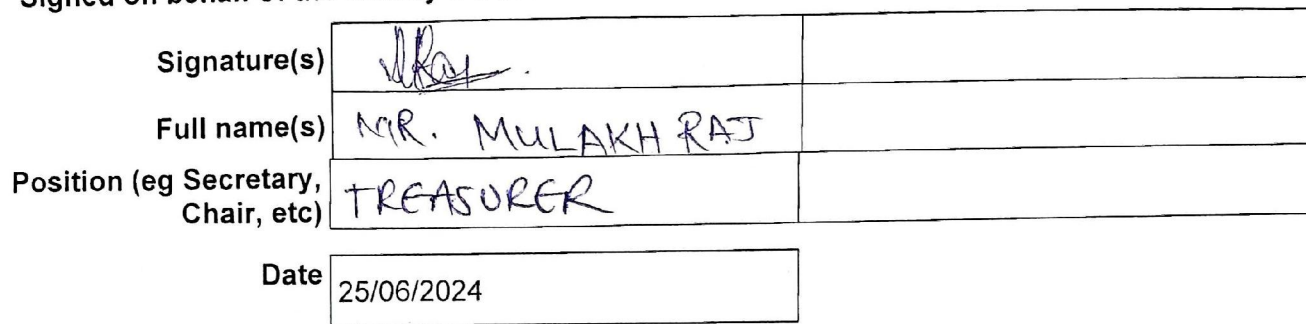 Signed on behalf of the
Signature(s)
Full name(s) MR. MULAKH RAJ
Position (eg Secretary, Chair, etc) TREASURER
Date 25/06/2024